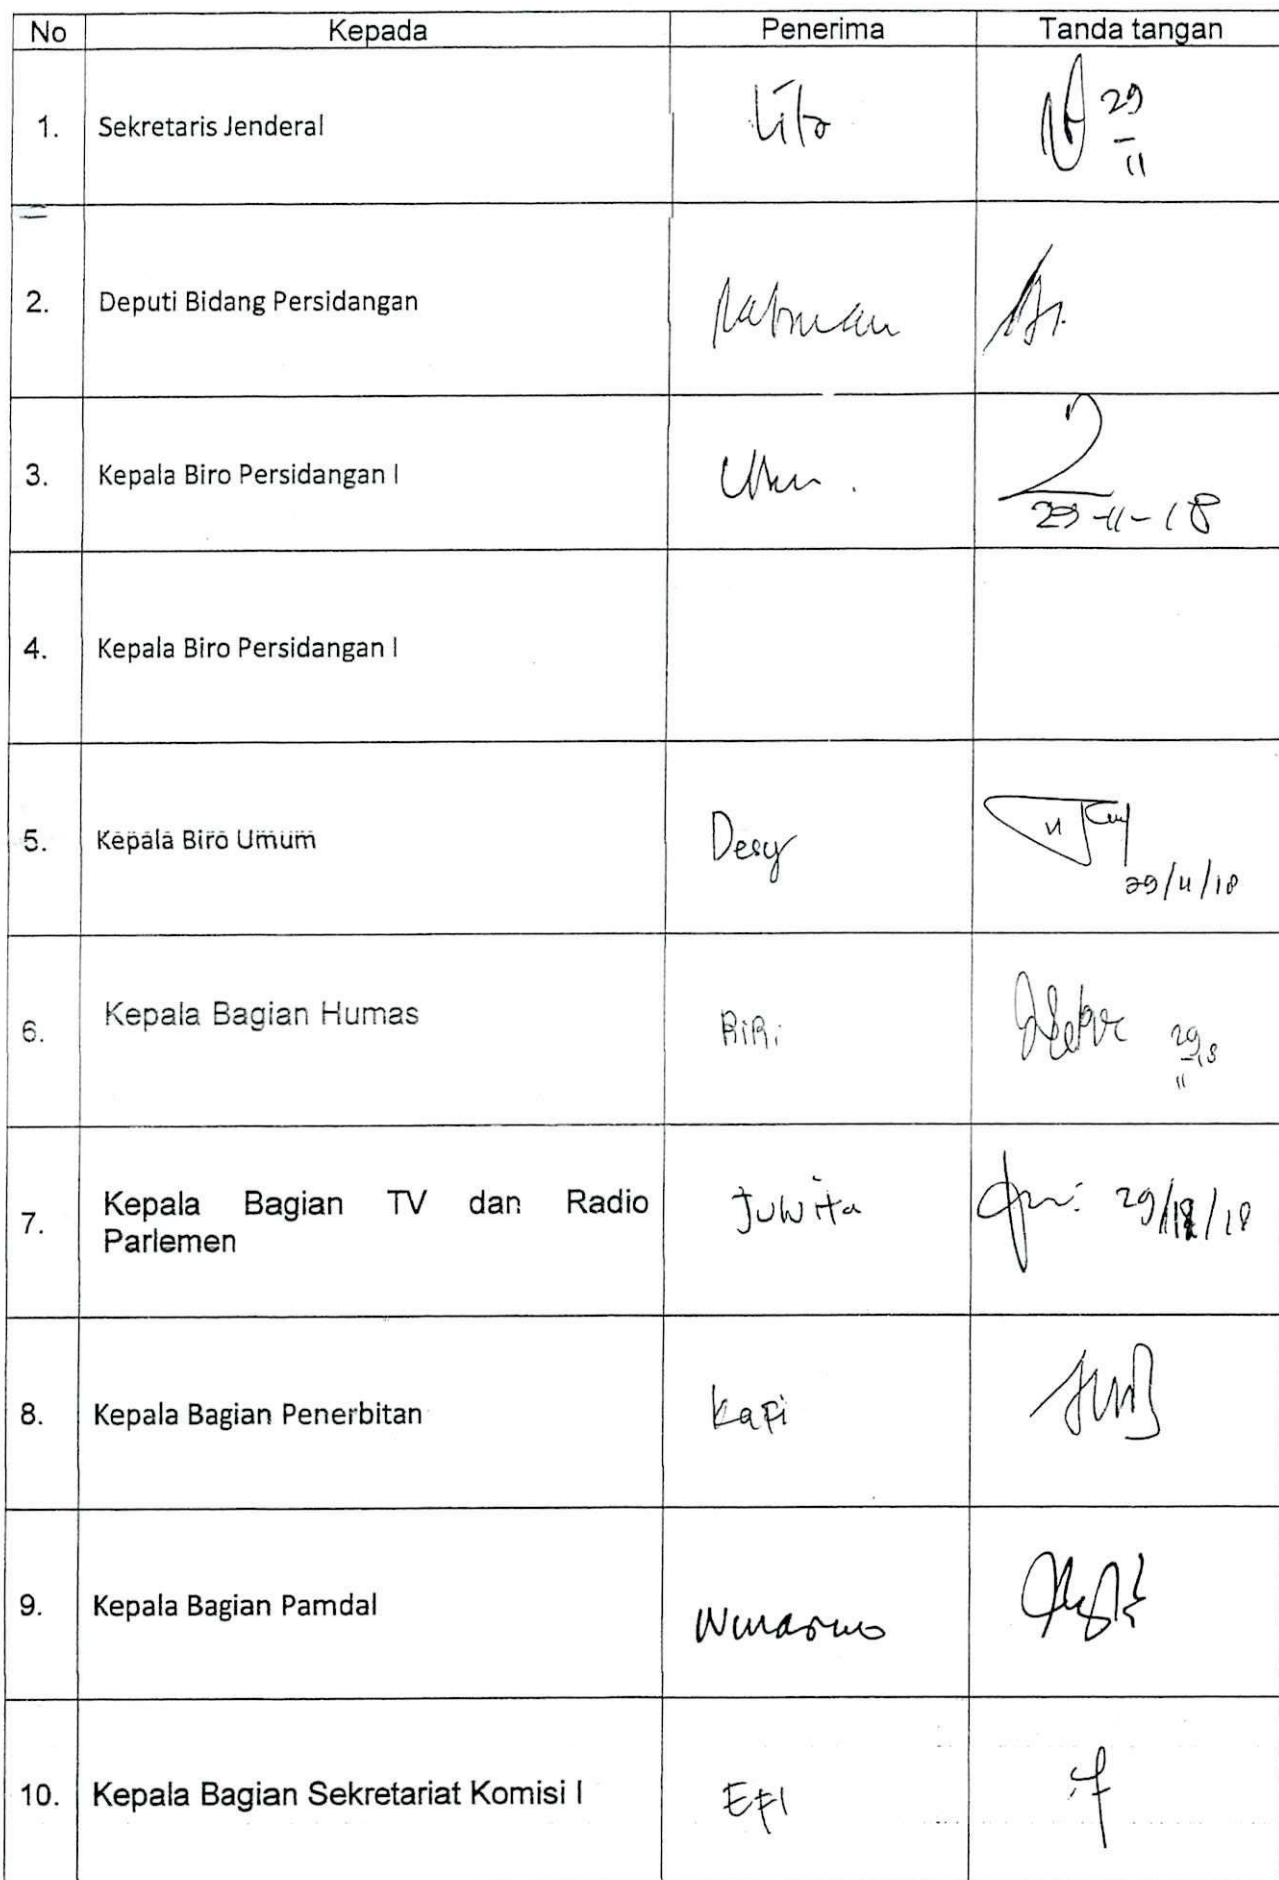 No Kepada Penerima Tanda tangan
1. Sekretaris Jenderal Lito 29
11
2. Deputi Bidang Persidangan
3. Kepala Biro Persidangan I
29-11-18
4. Kepala Biro Persidangan I
5. Kepala Biro Umum Desy
29/11/18
6. Kepala Bagian Humas RiRi 29
11 18
7. Kepala Bagian TV dan Radio Juwita 29/11/18
Parlemen
8. Kepala Bagian Penerbitan Kafi
9. Kepala Bagian Pamdal
10. Kepala Bagian Sekretariat Komisi I EFI